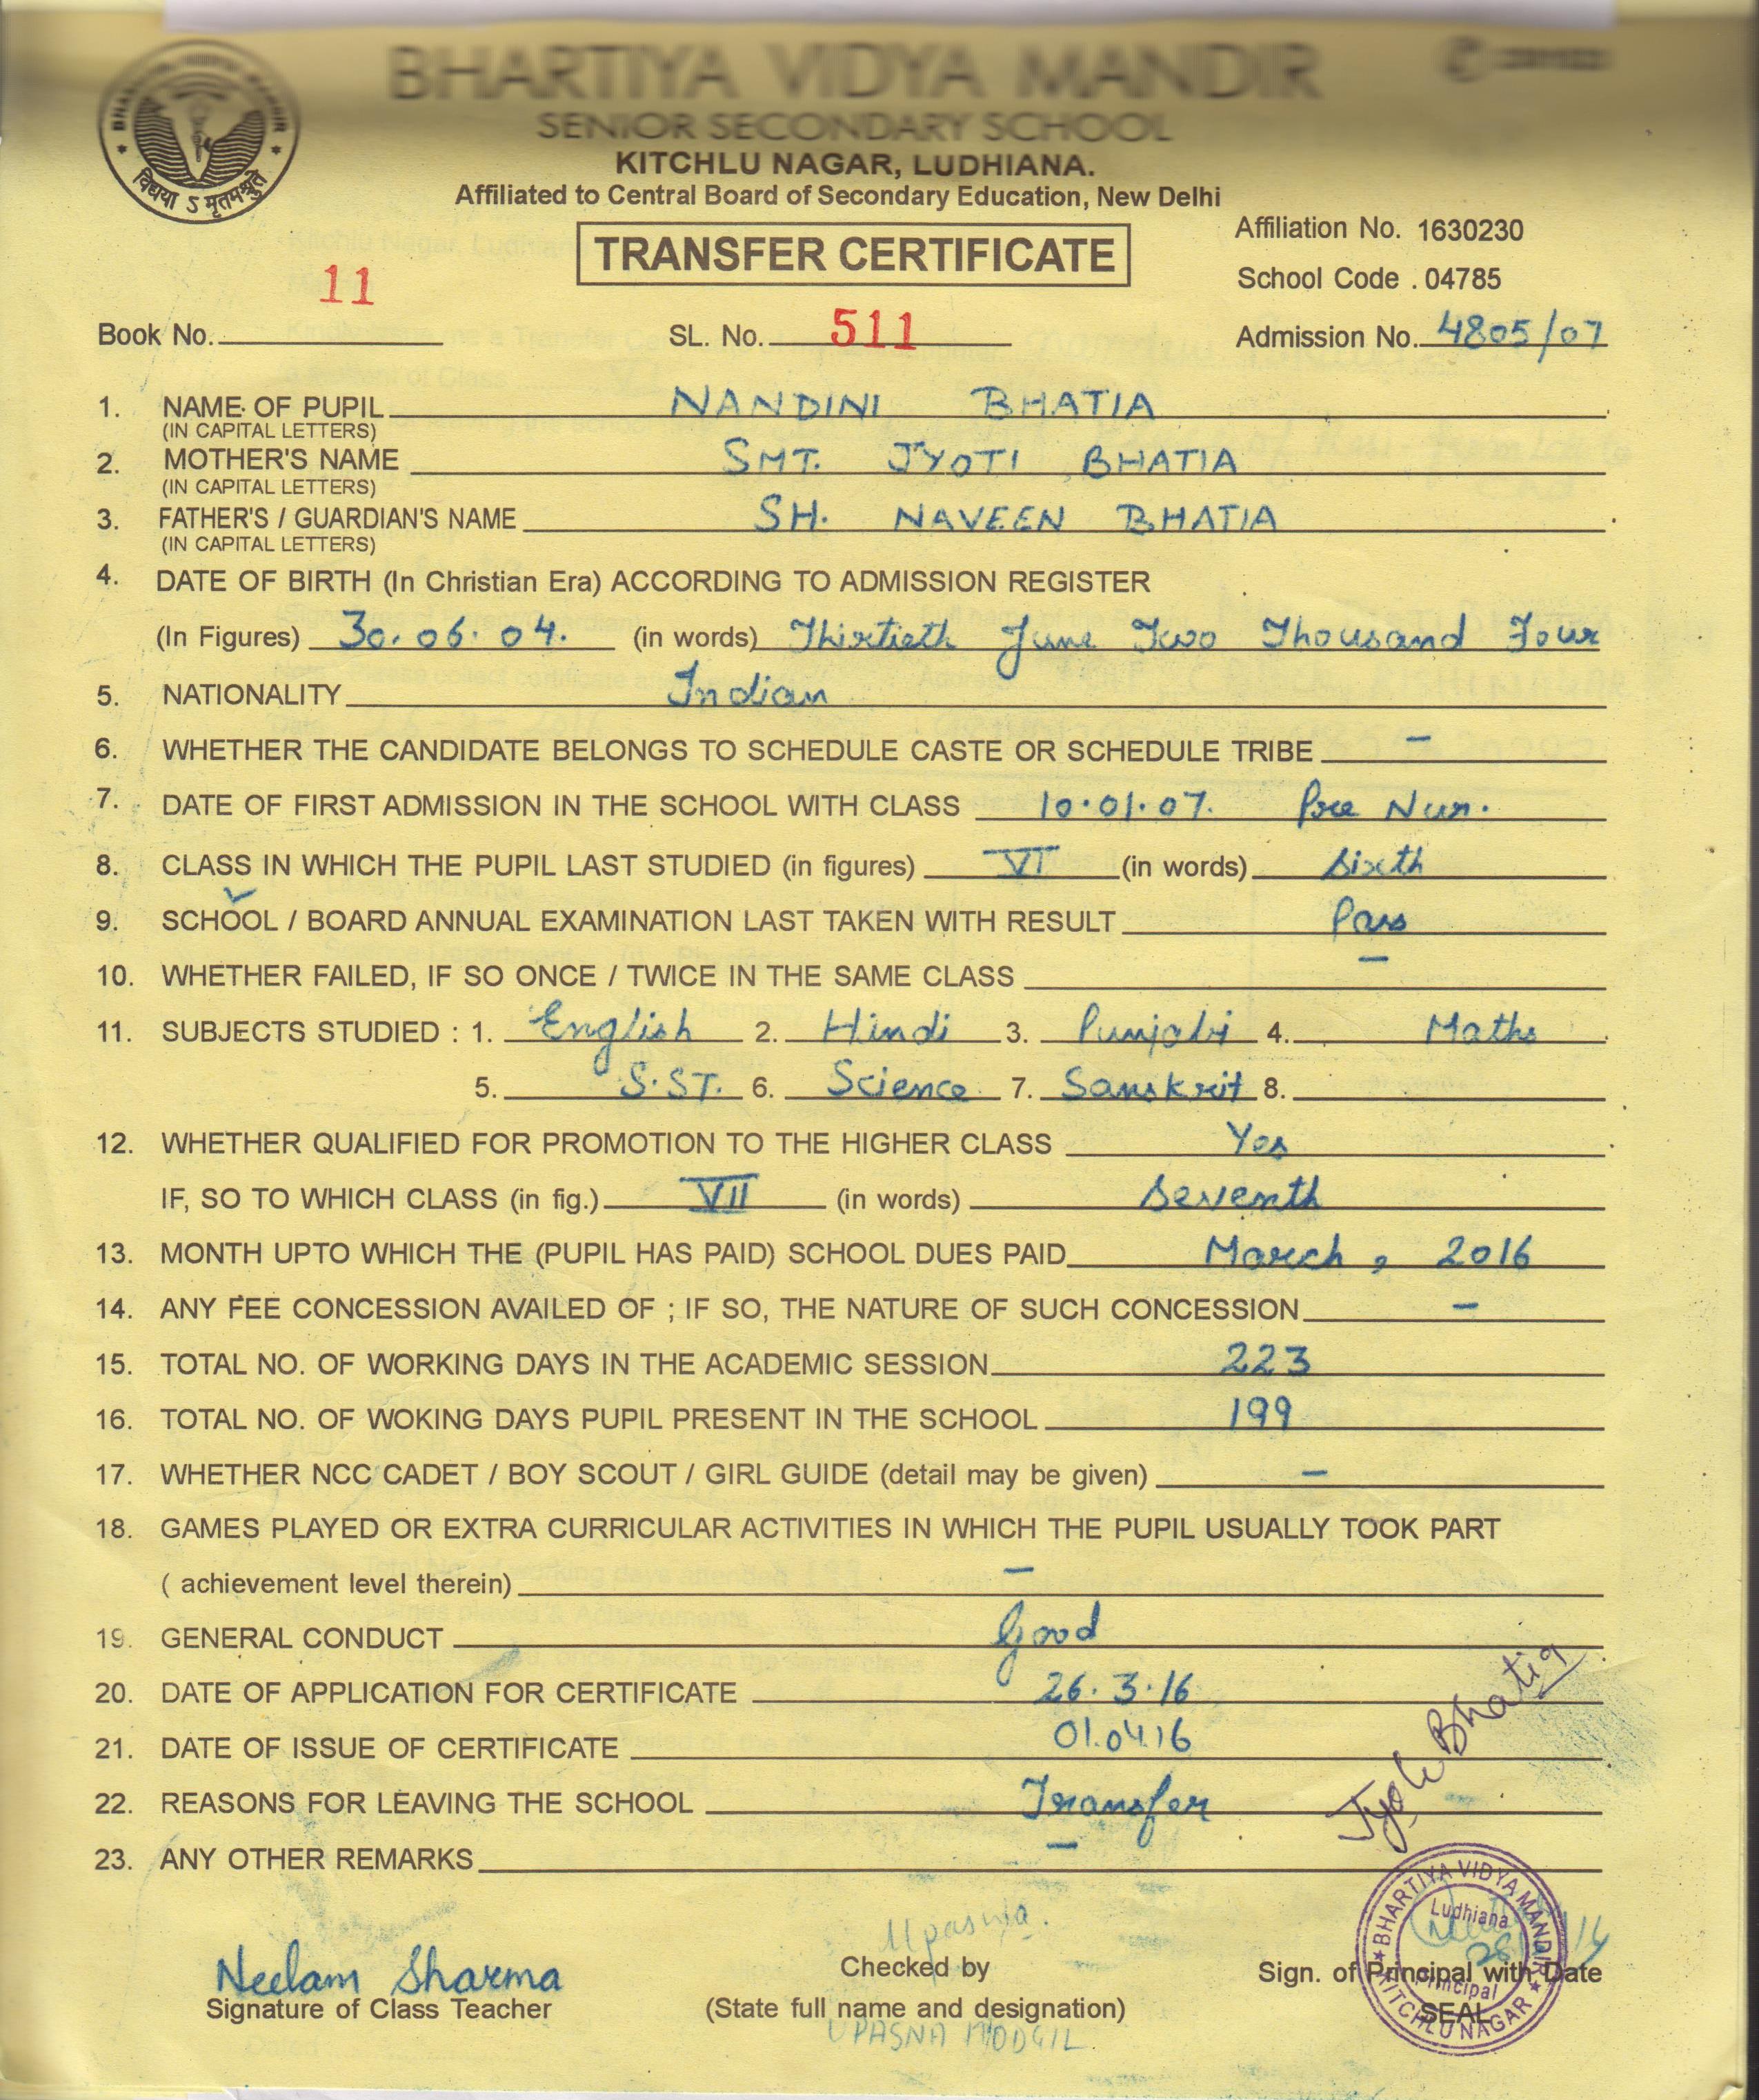 BHARTIYA VIDYA MANDIR
SENIOR SECONDARY SCHOOL
KITCHLU NAGAR, LUDHIANA.
Affiliated to Central Board of Secondary Education, New Delhi
TRANSFER CERTIFICATE
Affiliation No. 1630230
School Code . 04785
Book No. 11 SL. No. 511 Admission No. 4805/07
1. NAME OF PUPIL NANDINI BHATIA
(IN CAPITAL LETTERS)
2. MOTHER'S NAME SMT. JYOTI BHATIA
(IN CAPITAL LETTERS)
3. FATHER'S / GUARDIAN'S NAME SH. NAVEEN BHATIA
(IN CAPITAL LETTERS)
4. DATE OF BIRTH (In Christian Era) ACCORDING TO ADMISSION REGISTER
(In Figures) 30.06.04. (in words) Thirtieth June Two Thousand Four
5. NATIONALITY Indian
6. WHETHER THE CANDIDATE BELONGS TO SCHEDULE CASTE OR SCHEDULE TRIBE –
7. DATE OF FIRST ADMISSION IN THE SCHOOL WITH CLASS 10.01.07. Pre Nur.
8. CLASS IN WHICH THE PUPIL LAST STUDIED (in figures) VI (in words) Sixth
9. SCHOOL / BOARD ANNUAL EXAMINATION LAST TAKEN WITH RESULT Pass
10. WHETHER FAILED, IF SO ONCE / TWICE IN THE SAME CLASS –
11. SUBJECTS STUDIED : 1. English 2. Hindi 3. Punjabi 4. Maths
5. S.ST. 6. Science 7. Sanskrit 8.
12. WHETHER QUALIFIED FOR PROMOTION TO THE HIGHER CLASS Yes
IF, SO TO WHICH CLASS (in fig.) VII (in words) Seventh
13. MONTH UPTO WHICH THE (PUPIL HAS PAID) SCHOOL DUES PAID March, 2016
14. ANY FEE CONCESSION AVAILED OF ; IF SO, THE NATURE OF SUCH CONCESSION –
15. TOTAL NO. OF WORKING DAYS IN THE ACADEMIC SESSION 223
16. TOTAL NO. OF WOKING DAYS PUPIL PRESENT IN THE SCHOOL 199
17. WHETHER NCC CADET / BOY SCOUT / GIRL GUIDE (detail may be given) –
18. GAMES PLAYED OR EXTRA CURRICULAR ACTIVITIES IN WHICH THE PUPIL USUALLY TOOK PART
( achievement level therein) –
19. GENERAL CONDUCT Good
20. DATE OF APPLICATION FOR CERTIFICATE 26.3.16
21. DATE OF ISSUE OF CERTIFICATE 01.04.16
22. REASONS FOR LEAVING THE SCHOOL Transfer
23. ANY OTHER REMARKS –
Jyoti Bhatia
BHARTIYA VIDYA MANDIR
KITCHLU NAGAR
Ludhiana
Principal
Neelam Sharma
Signature of Class Teacher
Upasna.
Checked by
(State full name and designation)
UPASNA MODGIL
Sign. of Principal with Date
SEAL